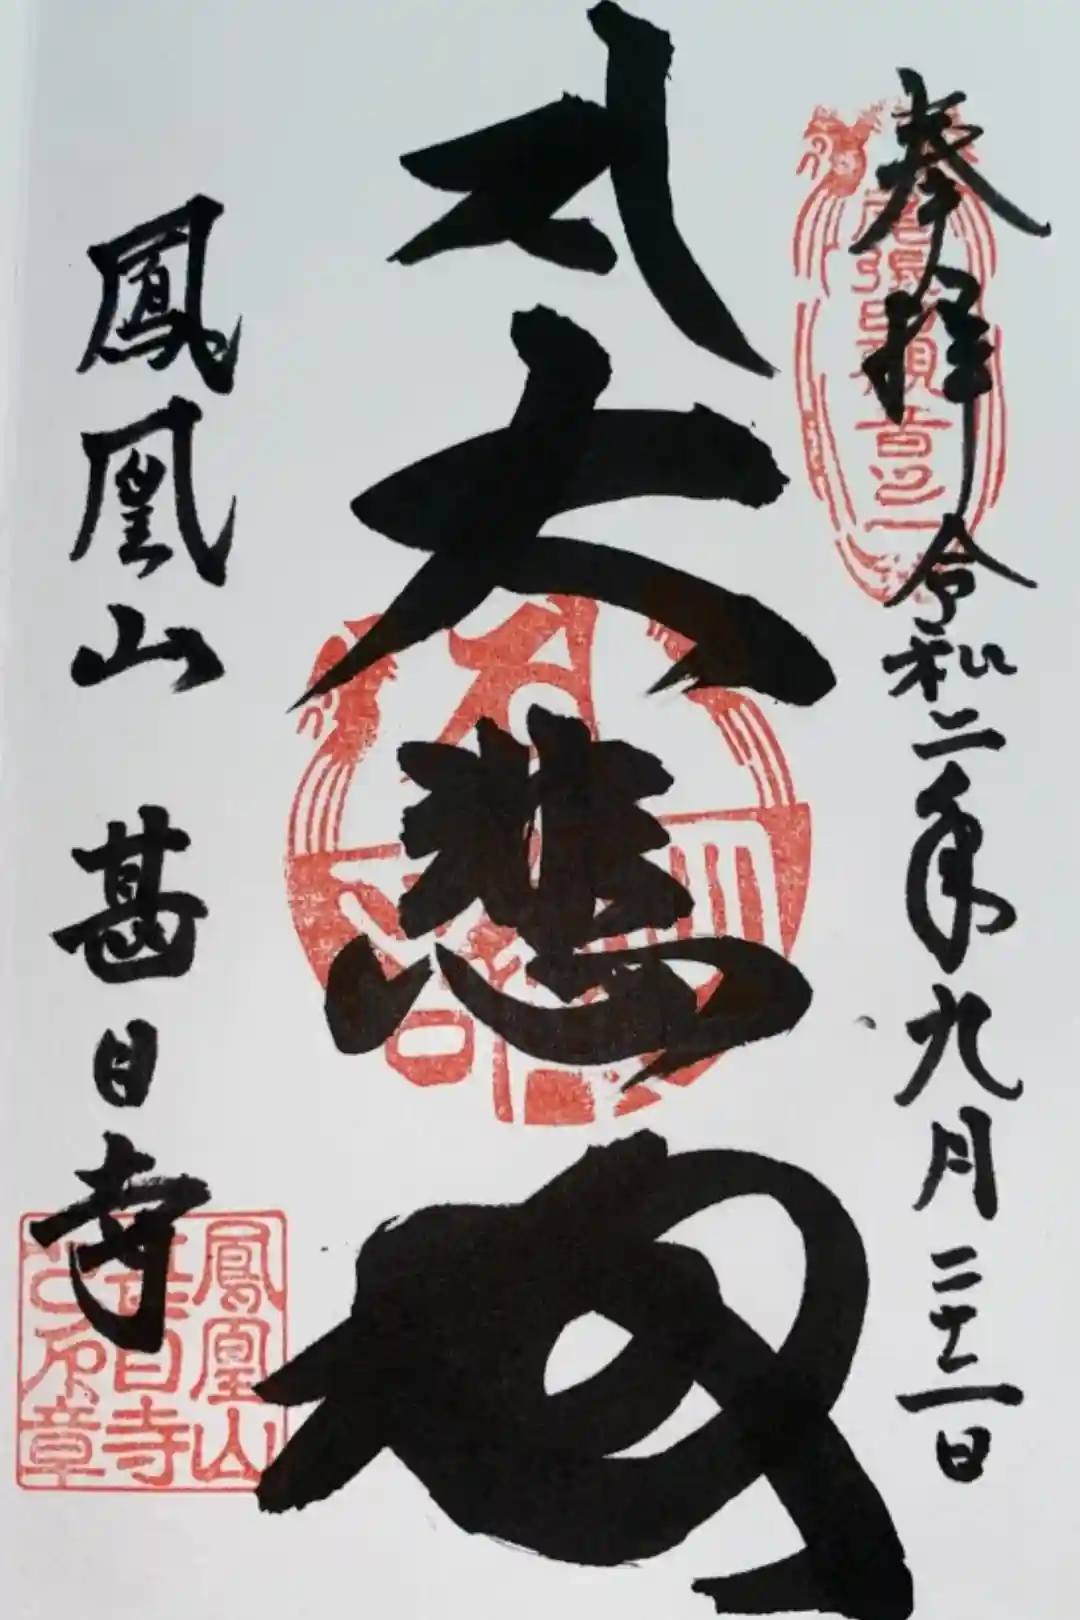 奉拝 令和二年九月二十二日
尾張四観音之一
大悲殿
鳳凰山 甚目寺
鳳凰山
甚目寺
之印章